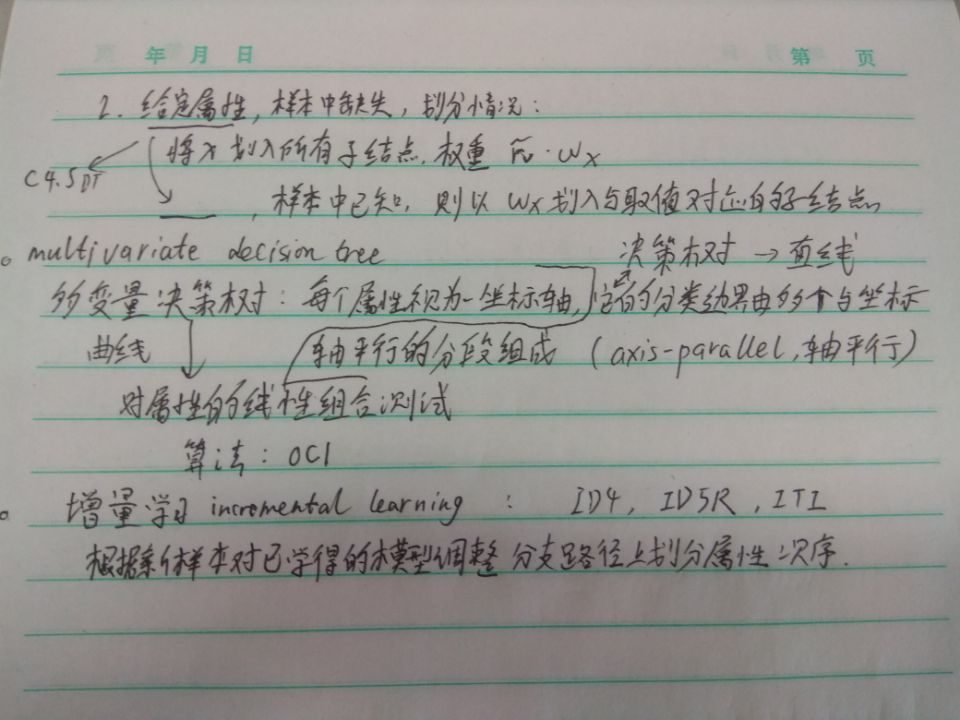 年 月 日 第 页
2. 给定属性，样本中缺失，划分情况：
将x划入所有子结点，权重 r̃v·wx
C4.5 DT
——，样本中已知，则以 wx 划入与取值对应的子结点
multivariate decision tree 决策树 → 直线
多变量决策树：每个属性视为一坐标轴，的分类边界由多个与坐标
曲线 轴平行的分段组成 (axis-parallel，轴平行)
对属性的线性组合测试
算法：OC1
增量学习 incremental learning ： ID4，ID5R，ITI
根据新样本对已学得的模型调整 分支路径上划分属性次序.